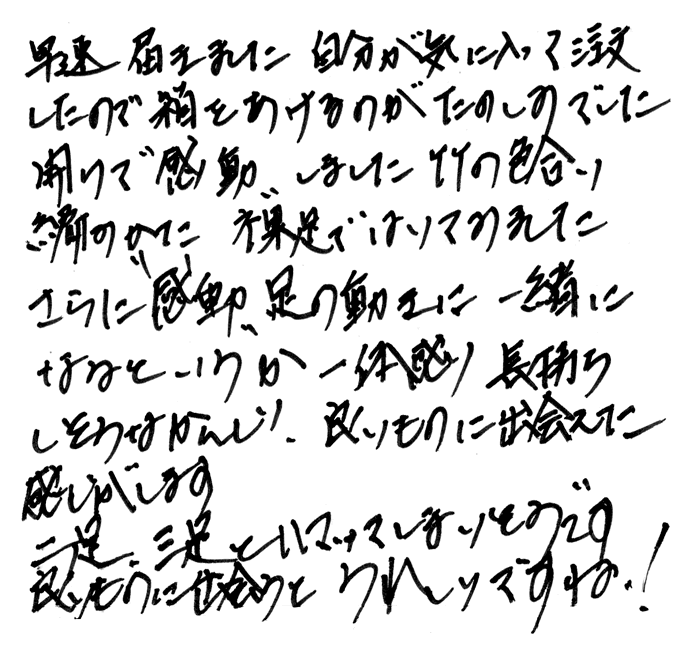 早速 届きました 自分が気に入って注文
したので箱をあけるのがたのしみでした
開けて"感動"しました 竹の色合い
編みのかた 裸足ではいてみました
さらに"感動"足の動きに 一緒に
なるというか 一体感!! 長持ち
しそうなかんじ!! 良いものに出会えた
感じがします
二足、三足とハマッてしまいそうです
良いものに出会うと うれしいですね!